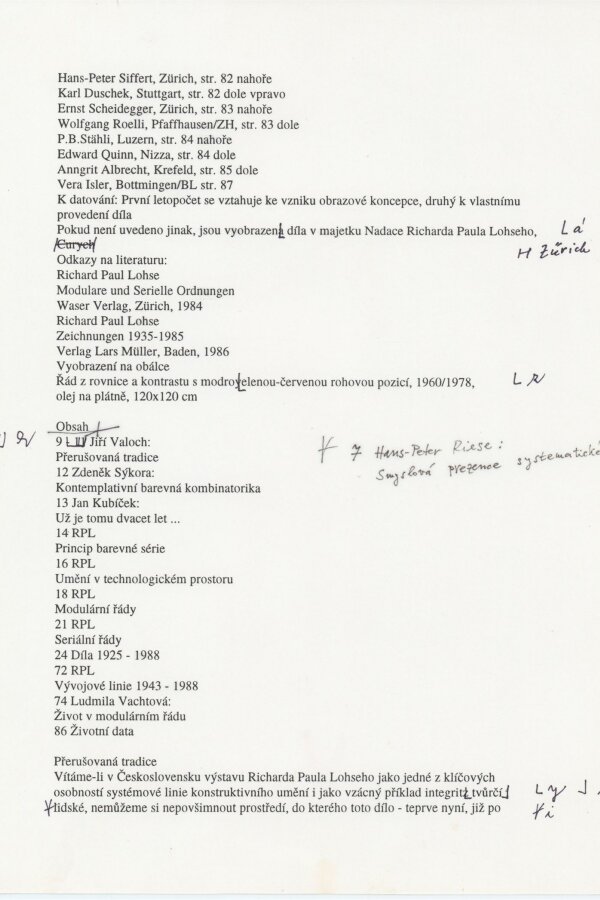 Hans-Peter Siffert, Zürich, str. 82 nahoře
Karl Duschek, Stuttgart, str. 82 dole vpravo
Ernst Scheidegger, Zürich, str. 83 nahoře
Wolfgang Roelli, Pfaffhausen/ZH, str. 83 dole
P.B.Stähli, Luzern, str. 84 nahoře
Edward Quinn, Nizza, str. 84 dole
Anngrit Albrecht, Krefeld, str. 85 dole
Vera Isler, Bottmingen/BL str. 87
K datování: První letopočet se vztahuje ke vzniku obrazové koncepce, druhý k vlastnímu
provedení díla
Pokud není uvedeno jinak, jsou vyobrazena díla v majetku Nadace Richarda Paula Lohseho, á
Curych H Zürich
Odkazy na literaturu:
Richard Paul Lohse
Modulare und Serielle Ordnungen
Waser Verlag, Zürich, 1984
Richard Paul Lohse
Zeichnungen 1935-1985
Verlag Lars Müller, Baden, 1986
Vyobrazení na obálce
Řád z rovnice a kontrastu s modrovelenou-červenou rohovou pozicí, 1960/1978,
olej na plátně, 120x120 cm
Obsah
9 Jiří Valoch: 7 Hans-Peter Riese:
Přerušovaná tradice Smyslová prezence systematické
12 Zdeněk Sýkora:
Kontemplativní barevná kombinatorika
13 Jan Kubíček:
Už je tomu dvacet let ...
14 RPL
Princip barevné série
16 RPL
Umění v technologickém prostoru
18 RPL
Modulární řády
21 RPL
Seriální řády
24 Díla 1925 - 1988
72 RPL
Vývojové linie 1943 - 1988
74 Ludmila Vachtová:
Život v modulárním řádu
86 Životní data
Přerušovaná tradice
Vítáme-li v Československu výstavu Richarda Paula Lohseho jako jedné z klíčových
osobností systémové linie konstruktivního umění i jako vzácný příklad integrity tvůrčí y
lidské, nemůžeme si nepovšimnout prostředí, do kterého toto dílo - teprve nyní, již po i